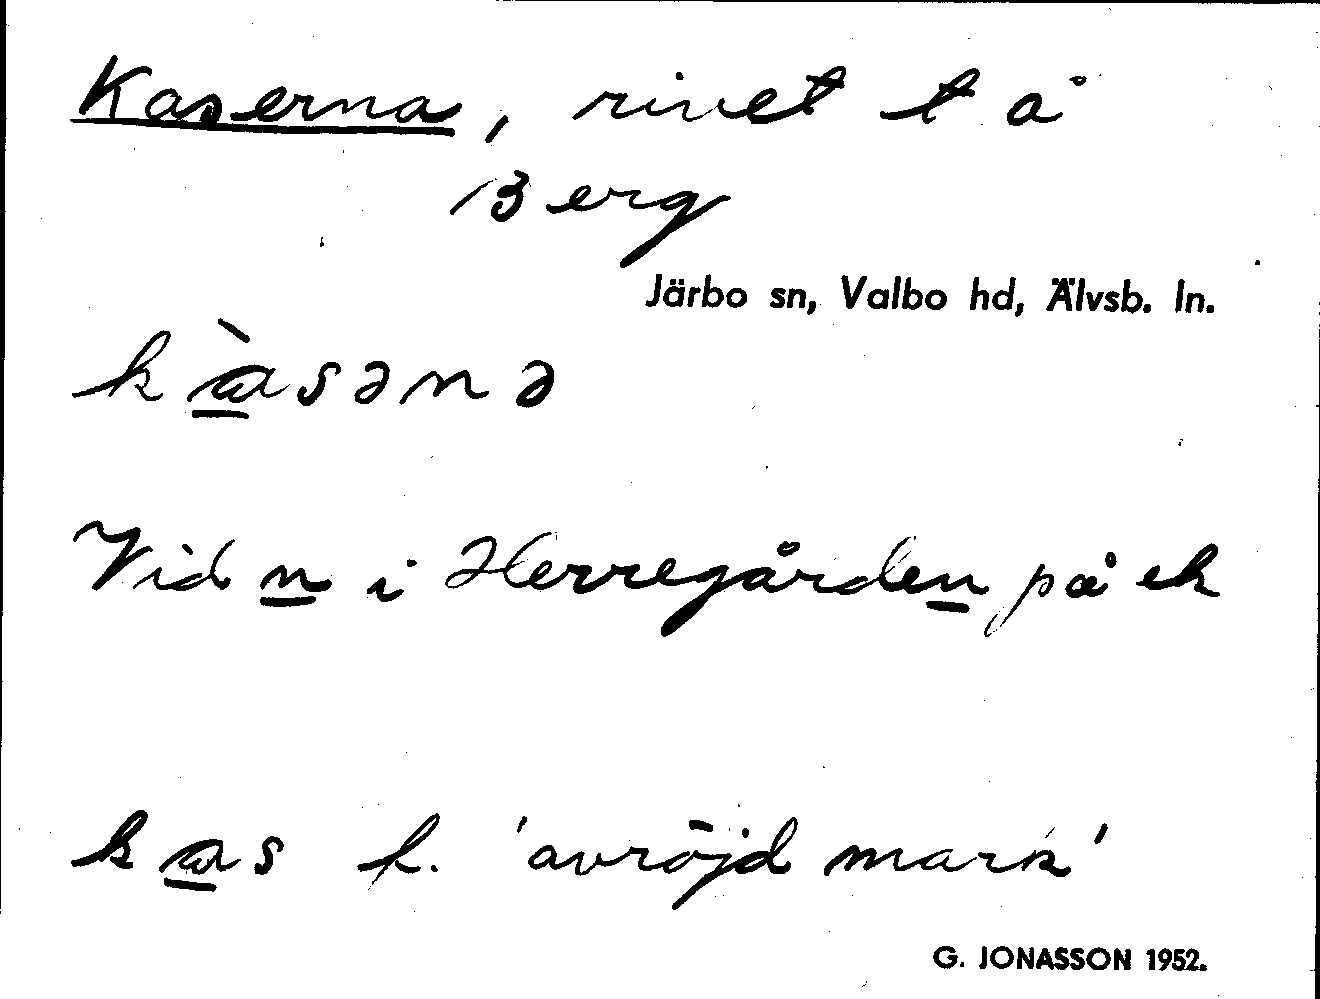 Kaserna, rivet t å
Berg
Järbo sn, Valbo hd, Älvsb. ln.
kàsənə
Vid n i Herregården på ek
kas f. 'avröjd mark'
G. JONASSON 1952.